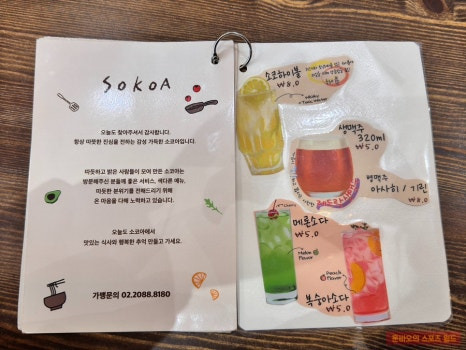 SOKOA
오늘도 찾아주셔서 감사합니다.
항상 따뜻한 진심을 전하는 감성 가득한 소코아입니다.
따뜻하고 밝은 사람들이 모여 만든 소코아는
방문해주신 분들에게 좋은 서비스, 색다른 메뉴,
따뜻한 분위기를 전해드리기 위해
온 마음을 다해 노력하고 있습니다.
오늘도 소코아에서
맛있는 식사와 행복한 추억 만들고 가세요.
가맹문의 02.2088.8180
소코하이볼
₩8.0
Whisky
+ Tonic Water
생맥주
320ml
₩5.0
병맥주
아사히 / 기린
₩8.0
메론소다
₩5.0
Cherry
Melon
Flavor
Peach
Flavor
복숭아소다
₩5.0